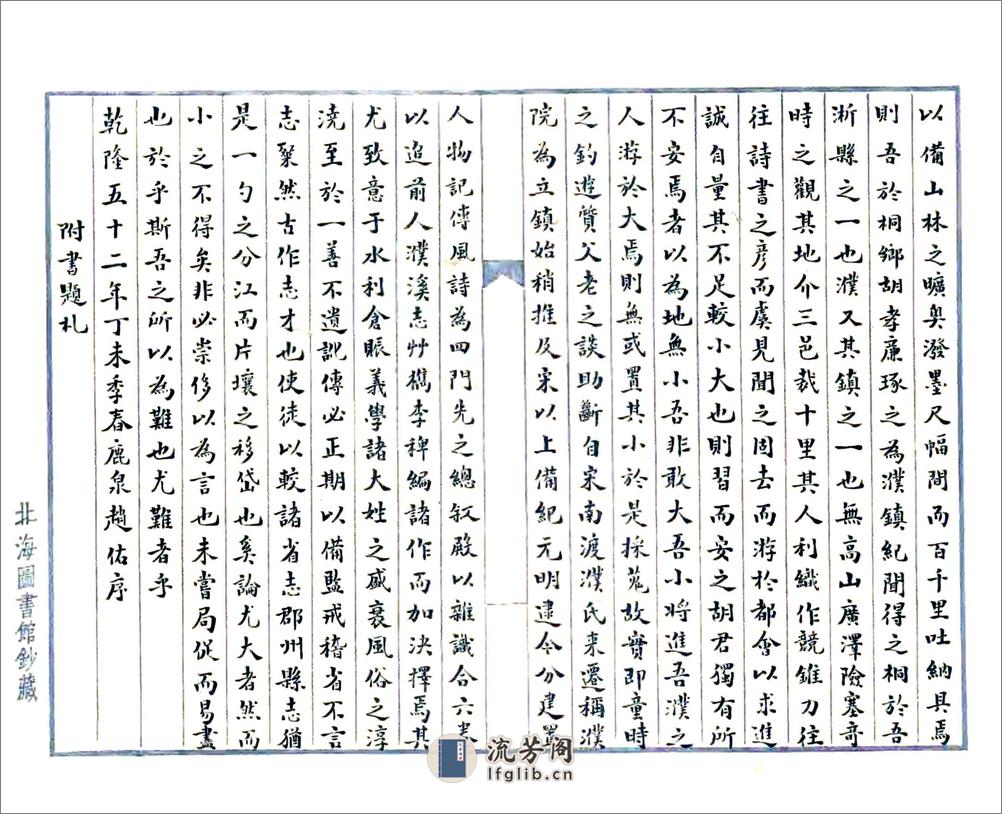 以備山林之曠奥潑墨尺幅間而百千里吐納具焉
則吾於桐鄉胡孝廉琢之為濮鎮紀聞得之桐於吾
浙縣之一也濮又其鎮之一也無高山廣澤險塞奇
時之觀其地介三邑裁十里其人利織作競錐刀往
往詩書之彦而虞見聞之固去而游於都會以求進
誠自量其不足較小大也則習而安之胡君獨有所
不安焉者以為地無小吾非敢大吾小將進吾濮之
人游於大焉則無或置其小於是採蒐故實即童時
之釣遊質父老之談助斷自宋南渡濮氏来遷稱濮
院為立鎮始稍推及宋以上備紀元明逮今分建置
人物記傳風詩為四門先之總叙殿以雜識合六卷
以追前人濮溪志艸檇李稗編諸作而加決擇焉其
尤致意于水利倉賑義學諸大姓之盛衰風俗之淳
澆至於一善不遺訛傳必正期以備監戒稽省不言
志槩然古作志才也使徒以較諸省志郡州縣志猶
是一勺之分江而片壤之移岱也奚論尤大者然而
小之不得矣非必崇侈以為言也未嘗局促而易盡
也於乎斯吾之所以為難也尤難者乎
乾隆五十二年丁未季春鹿泉趙佑序
附書題札
北海圖書館鈔藏
流芳阁
lfglib.cn